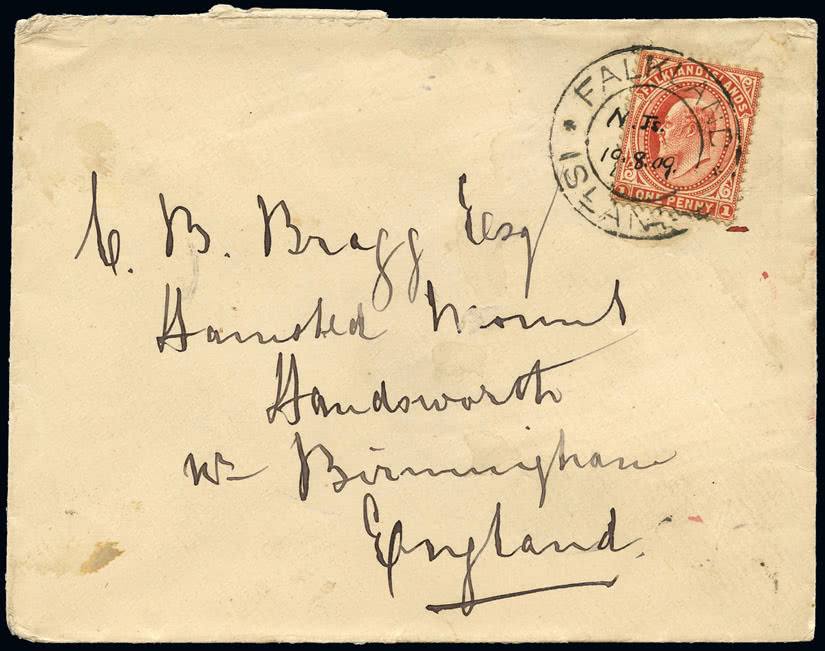 FALKLAND ISLANDS
FALKLAND ISLAN
N. Is.
19.8.09.
1 ONE PENNY 1
C. B. Bragg Esq
Hamsted Mount
Handsworth
Nr Birmingham
England.